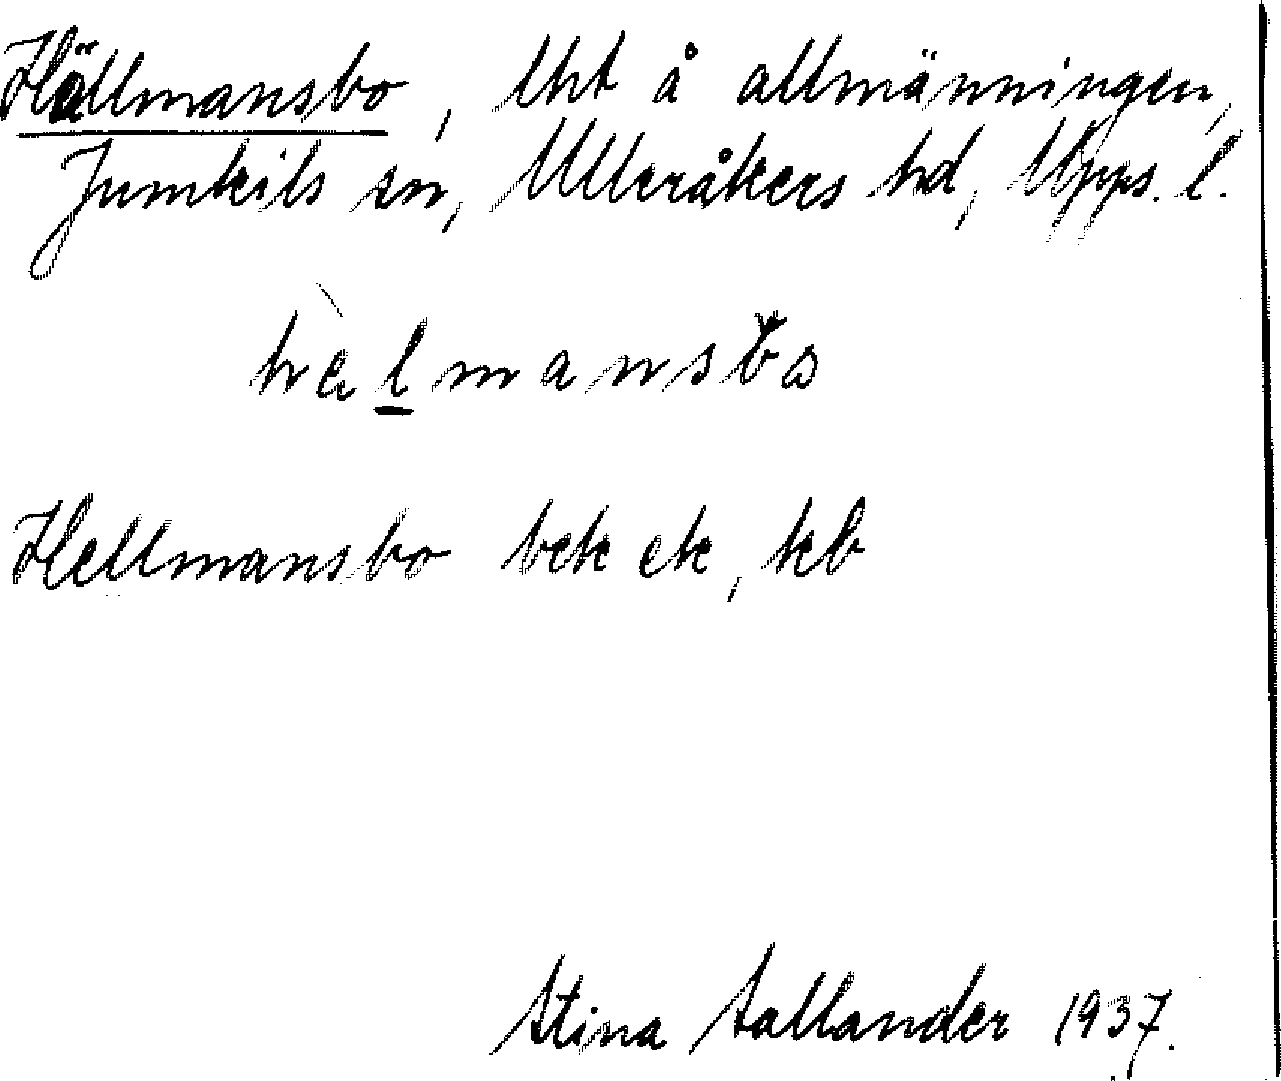 Hällmansbo, lht å allmänningen,
Jumkils sn, Ulleråkers hd, Upps. l.
hælmansbo
Hellmansbo bek ek, kb
Stina Sallander 1937.